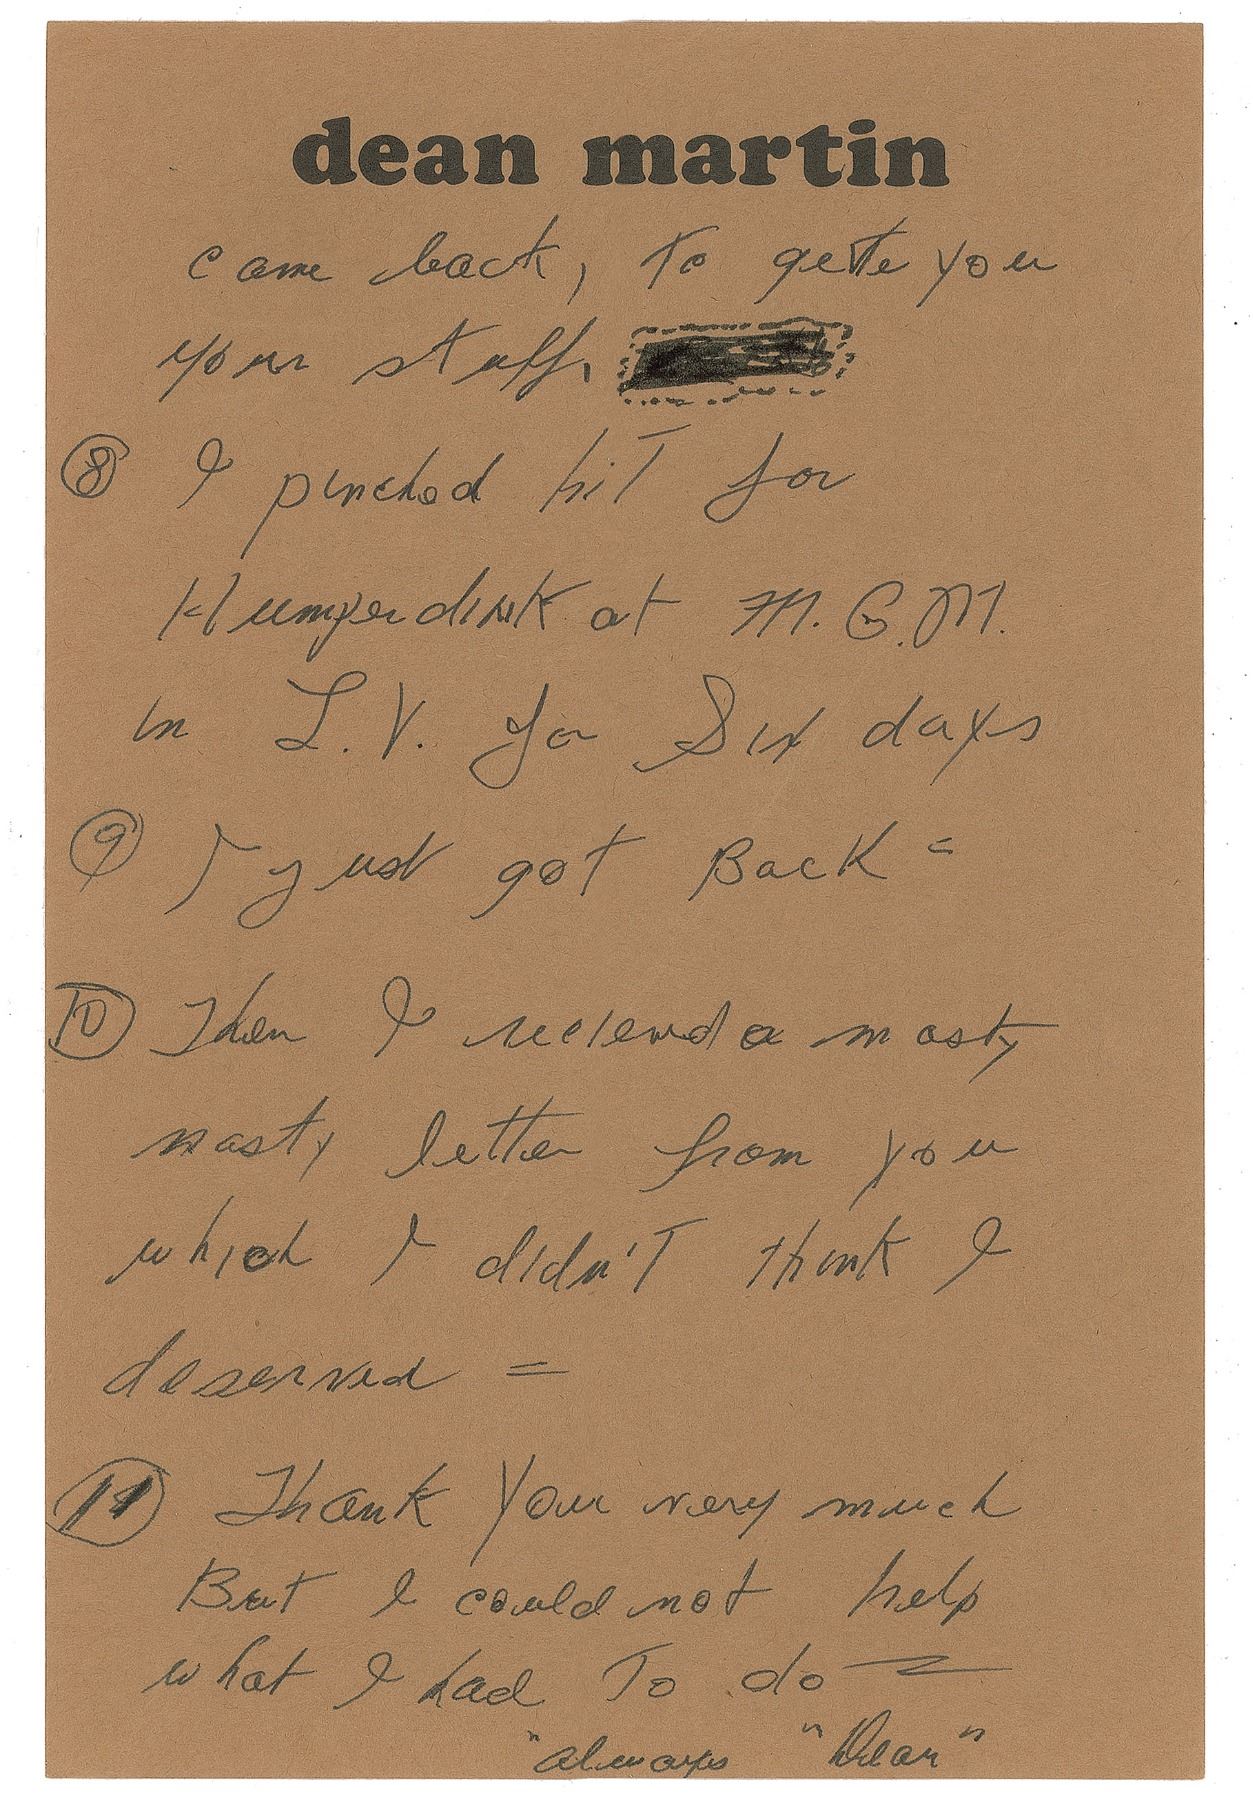 dean martin
came back, to gette you
your stuff,
⑧ I pinched hit for
Humperdink at M.G.M.
in L.V. for Six days
⑨ I just got Back =
⑩ Then I recieved a nasty
nasty letter from you
which I didn't think I
deserved =
⑪ Thank You very much
But I could not help
what I had To do
"always "Dean"